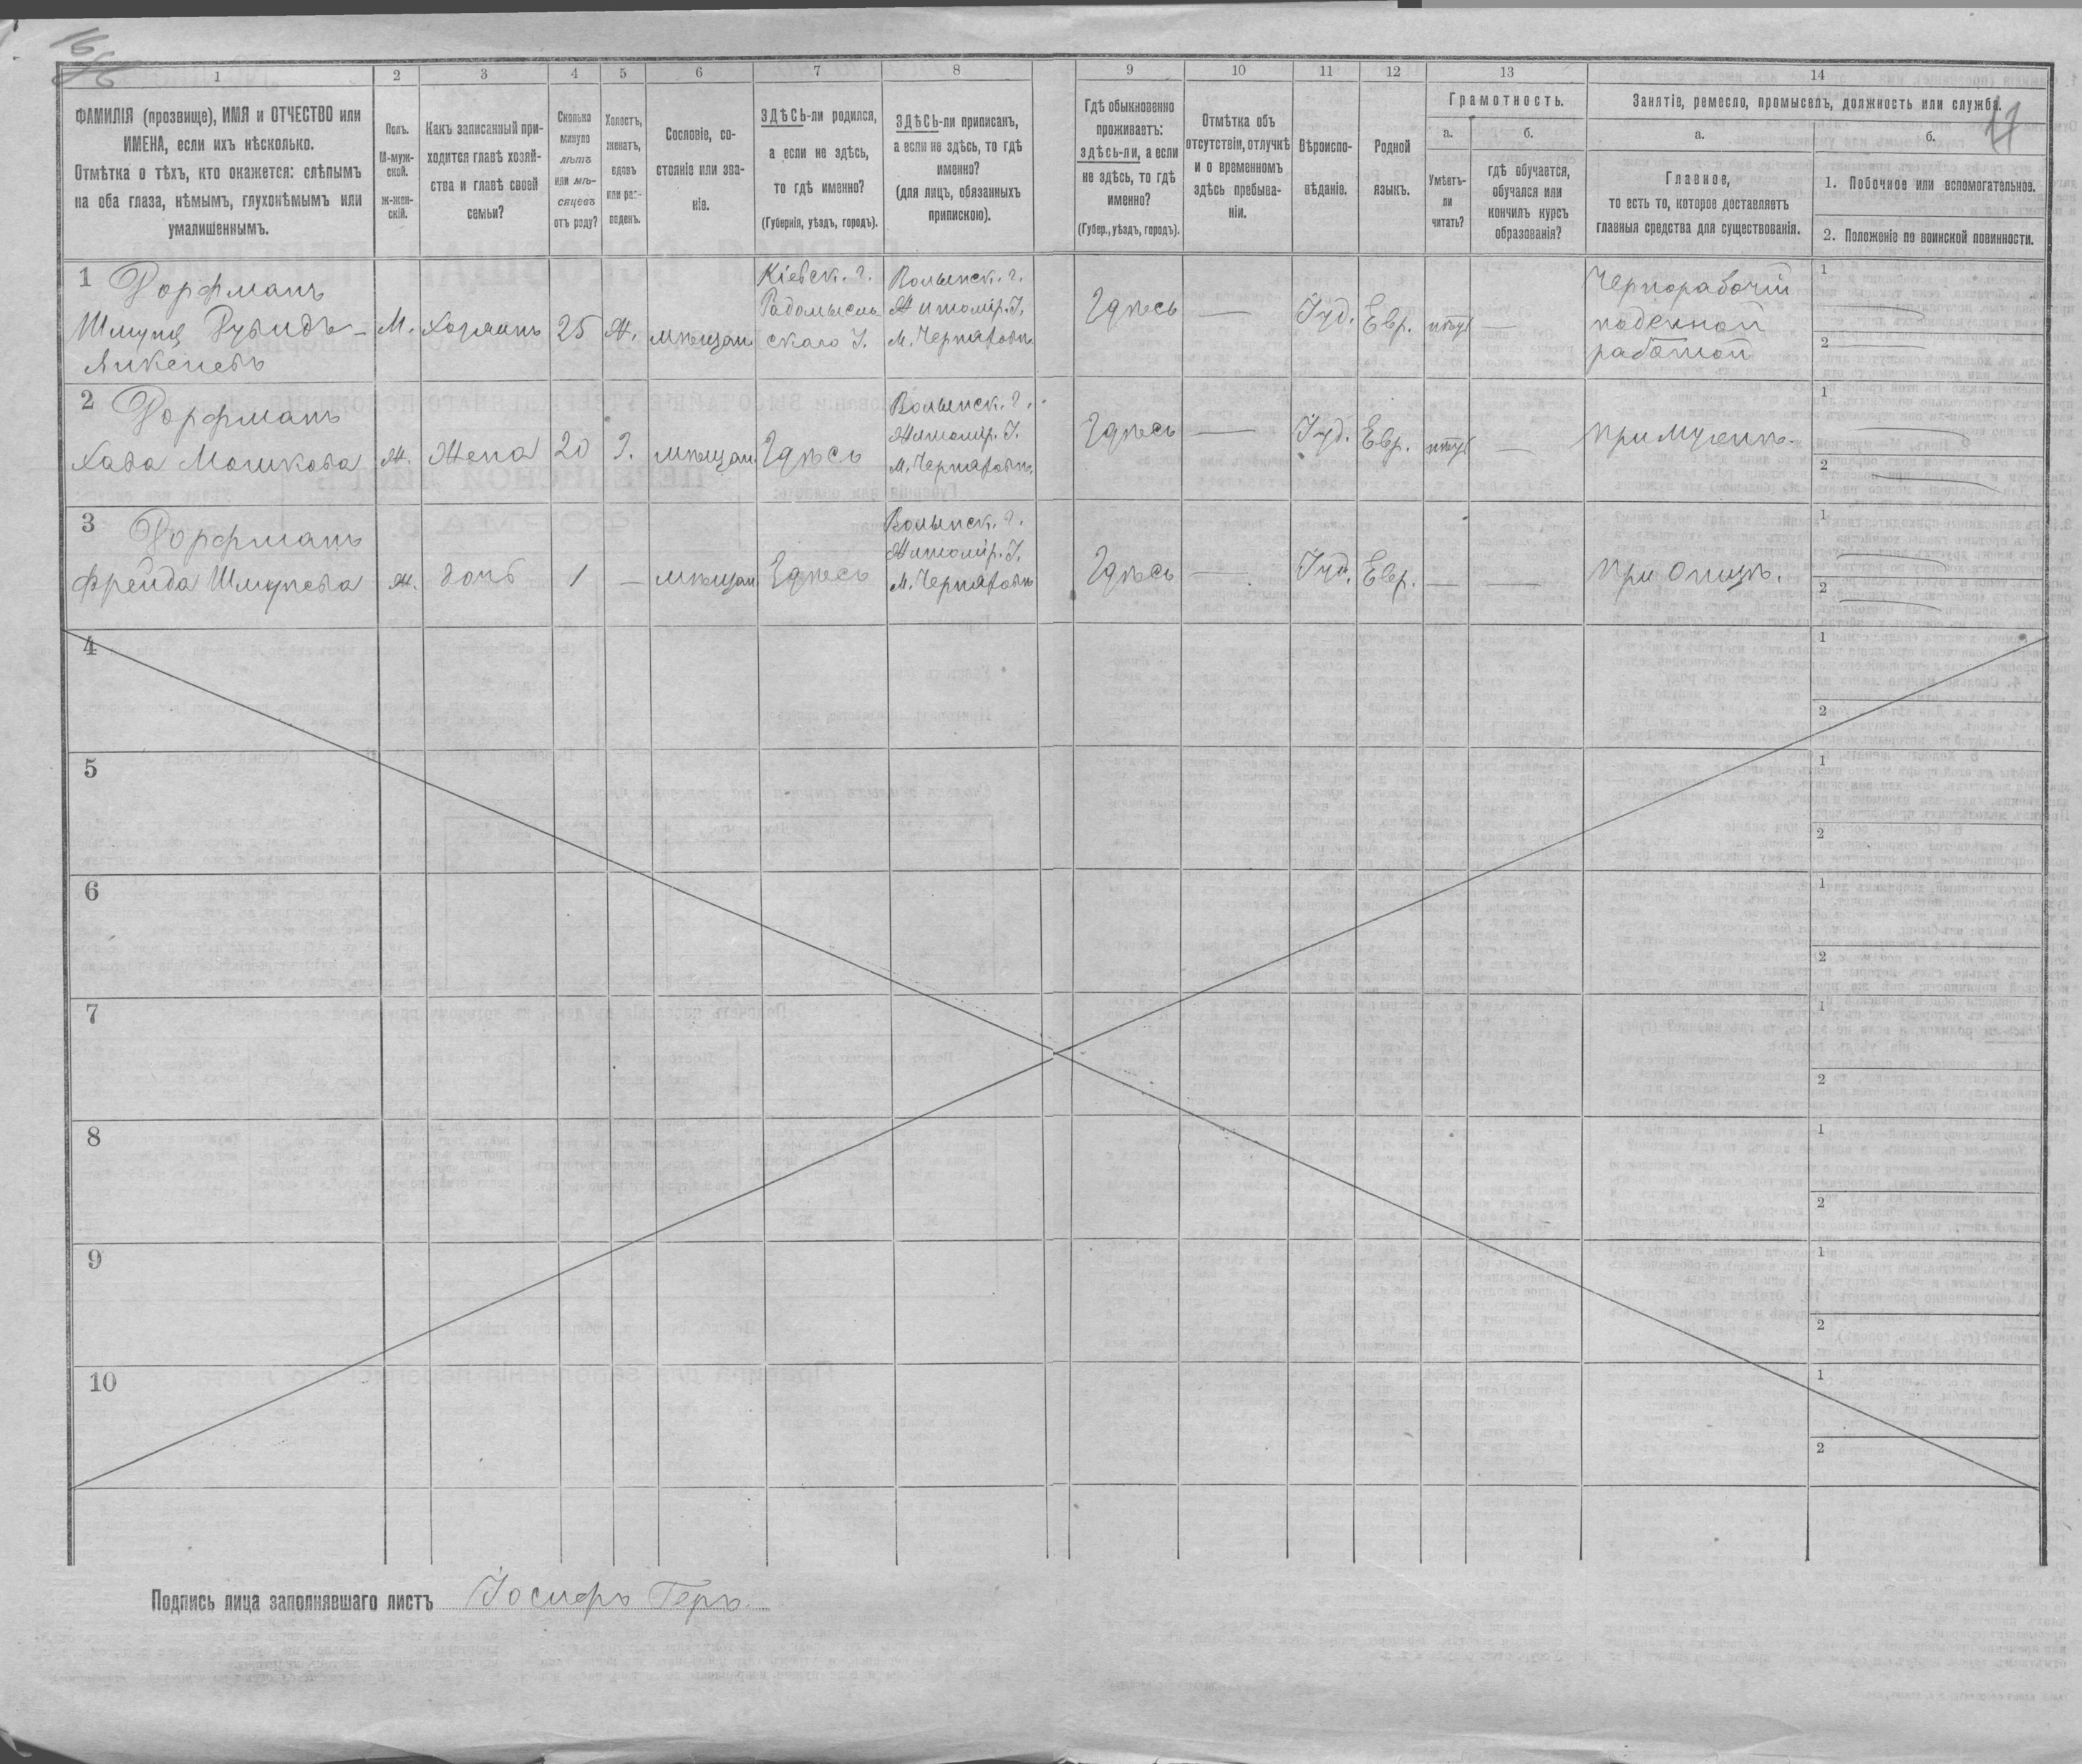 16
17
1 2 3 4 5 6 7 8 9 10 11 12 13 14
ФАМИЛІЯ (прозвище), ИМЯ и ОТЧЕСТВО или
ИМЕНА, если ихъ нѣсколько.
Отмѣтка о тѣхъ, кто окажется: слѣпымъ
на оба глаза, нѣмымъ, глухонѣмымъ или
умалишеннымъ.
Полъ.
М-муж-
ской.
ж-жен-
скій.
Какъ записанный при-
ходится главѣ хозяй-
ства и главѣ своей
семьи?
Сколько
минуло
лѣтъ
или мѣ-
сяцевъ
отъ роду?
Холостъ,
женатъ,
вдовъ
или раз-
веденъ.
Сословіе, со-
стояніе или зва-
ніе.
ЗДѢСЬ-ли родился,
а если не здѣсь,
то гдѣ именно?
(Губернія, уѣздъ, городъ).
ЗДѢСЬ-ли приписанъ,
а если не здѣсь, то гдѣ
именно?
(для лицъ, обязанныхъ
припискою).
Гдѣ обыкновенно
проживаетъ:
здѣсь-ли, а если
не здѣсь, то гдѣ
именно?
(Губер., уѣздъ, городъ).
Отмѣтка объ
отсутствіи, отлучкѣ
и о временномъ
здѣсь пребыва-
ніи.
Вѣроиспо-
вѣданіе.
Родной
языкъ.
Грамотность.
а.
Умѣетъ-
ли
читать?
б.
гдѣ обучается,
обучался или
кончилъ курсъ
образованія?
Занятіе, ремесло, промыселъ, должность или служба.
а.
Главное,
то есть то, которое доставляетъ
главныя средства для существованія.
б.
1. Побочное или вспомогательное.
2. Положеніе по воинской повинности.
1 Дорфманъ
Шмуль
Янкелевъ
М. Хозяинъ 25 Ж. мѣщан.
Кіевск. г.
Радомысль
скаго У.
Волынск. г.
Житомір. У.
М. Черняховъ
Здѣсь — Іуд. Евр. нѣтъ —
Чернорабочій
поденной
работой
1 —
2 —
2 Дорфманъ
Хава Мошкова
Ж. Жена 20 З. мѣщан. Здѣсь
Волынск. г.
Житомір. У.
М. Черняховъ
Здѣсь — Іуд. Евр. нѣтъ —
при мужѣ.
1 —
2 —
3 Дорфманъ
Фрейда Шмулева
Ж. дочь 1 — мѣщан. Здѣсь
Волынск. г.
Житомір. У.
М. Черняховъ
Здѣсь — Іуд. Евр. — —
при отцѣ.
1 —
2 —
4 1
2
5 1
2
6 1
2
7 1
2
8 1
2
9 1
2
10 1
2
Подпись лица заполнявшаго листъ Іосифъ Геръ